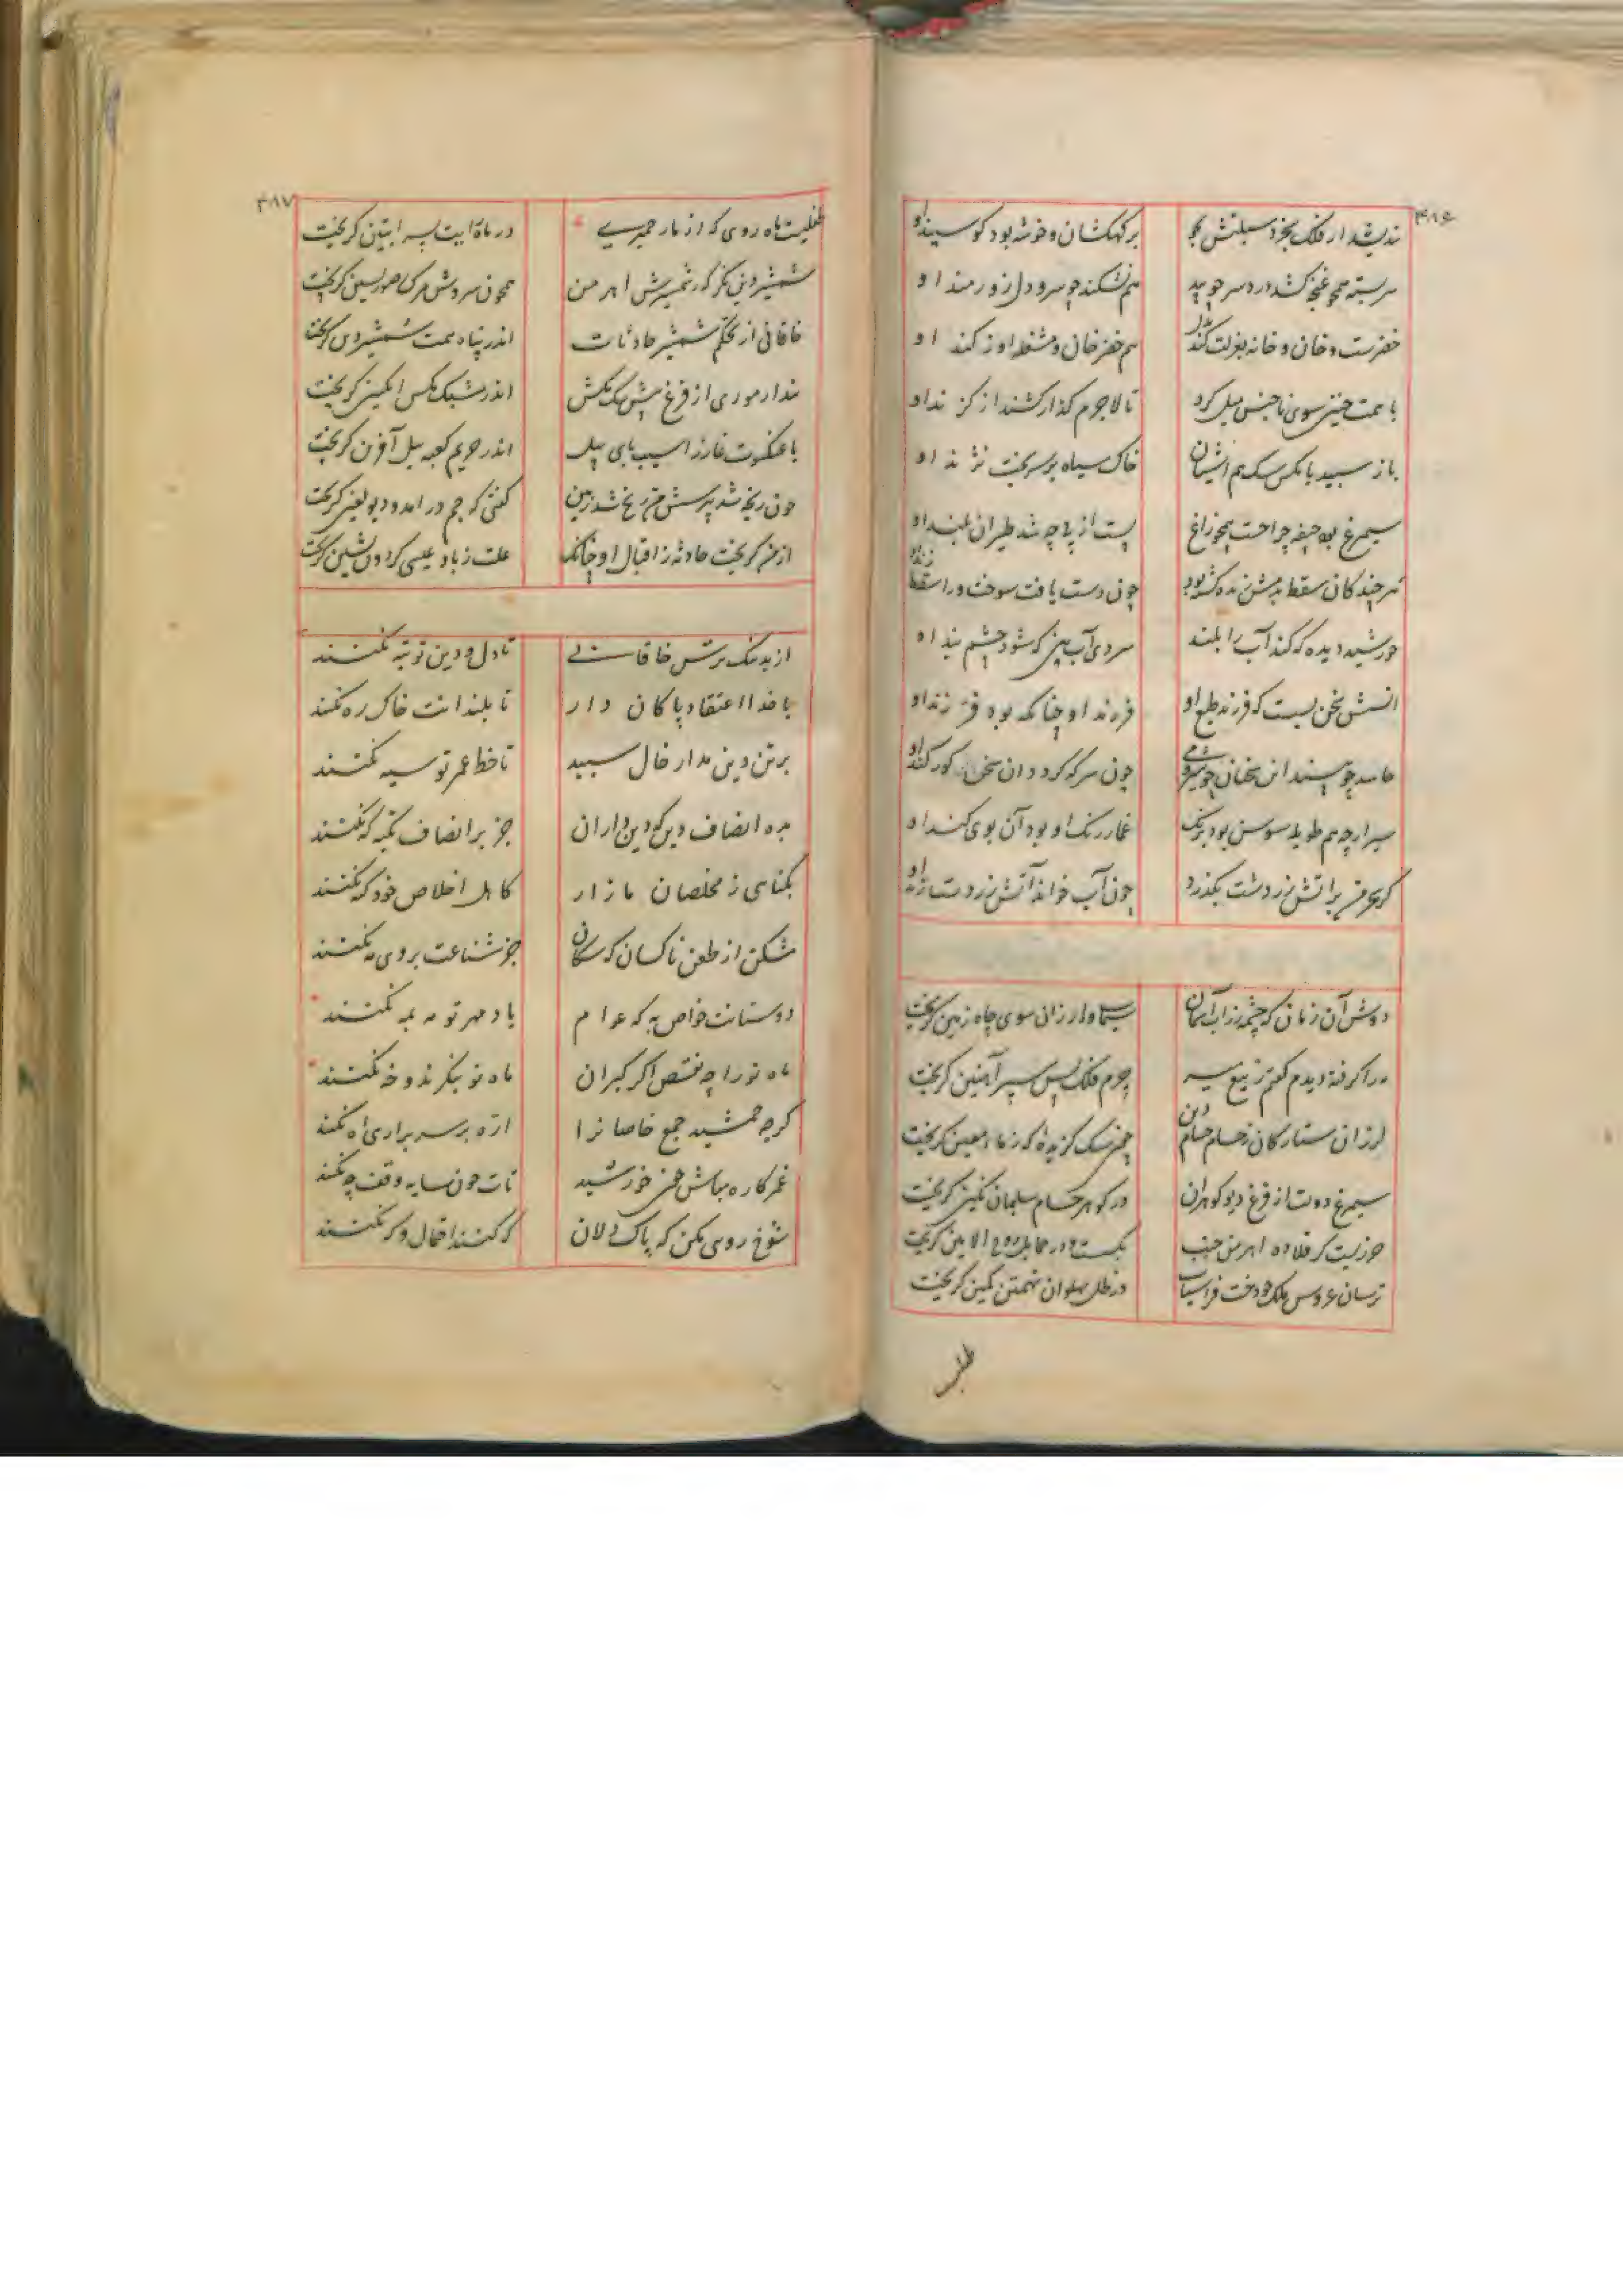 ۴۸۶
بر کهکشان و خوشه بود کو سپند او
سربسته همچو غنچه کشد دردسر چو بید
هم نشکند چو سرو دل زورمند او
خضرست و خان و خانه بعزلت کند بدل
هم خضر خان و مشغله اوز کند او
با همت چنین سوی ناجنس میل کرد
تا لاجرم گذار کشند از گزند او
باز سپید با مگس سگ هم آشیان
خاک سیاه بر سر بخت نژند او
سیمرغ بود جیفه چرا جست همچو زاغ
پست از چه شد طیران بلند او
هر چند کان سقط بدمش زنده گشته بود
چون دست یافت سوخت ورا سقط زند او
خورشید دیده که کند آب را بلند
سردی آب بین که شود چشم بند او
اتسش سخن بست که فرزند طبع او
فرزند او چنانکه بود فرزند او
حاسد چو بیند این سخنان چو شیر و می
چون سرکه گردد آن سخن کورکند او
سیر ارچه هم طویله سوسن بود برنگ
غماز رنگ او بود آن بوی گند او
گر بحرفش بر آتش زردشت بگذرد
چون آب خواند آتش زردشت زند او
دوش آن زمان که چشمه زراب آسمان
سیماب‌وار زان سوی چاه زمین گریخت
مه را گرفته دیدم گفتم ز تیغ میر
جرم فلک پس سپر آهنین گریخت
لرزان ستارگان ز حسام حسام دین
چون سگ گزیده که ز ماء معین گریخت
سیمرغ دولت از فزع دیو گوهران
در گوهر حسام سلیمان نگین گریخت
حوریست کز قلاده اهرمن جنب
بگسست و در حمایل روح الامین گریخت
ترسان عروس ملک چو دخت فراسیاب
در ظل پهلوان تهمتن کمین گریخت
طفلی
۴۸۷
طفلیست ماه روی که از مار حمیری
در ماه رایت پسر آبتین گریخت
شمشیر دین نگر که ز شمشیرش اهرمن
همچون سروش مرگ صور یسین گریخت
خاقانی از تحکم شمشیر حادثات
اندر پناه همت شمشیر دین گریخت
پندار موری از فزع پیش سگ مگس
اندر مشبک مگس انگبین گریخت
یا عنکبوت غار ز آسیب پای پیل
اندر حریم کعبه پیل آفرین گریخت
چون رنجه شد بپرسش من رنج شد ز من
گفتی که جم درآمد و دیو لعین گریخت
از من گریخت حادثه ز اقبال او چنانک
علت ز باد عیسی گردون نشین گریخت
از بد نیک ترس خاقانی
تا دل و دین تو تبه نکنند
با خدا اعتقاد پاکان دار
تا بلندانت خاک ره نکنند
بر تن دین مدار خال سپید
تا خط عمر تو سیه نکنند
بده انصاف دین که دین داران
جز بر انصاف تکیه‌گه نکنند
بگناهی ز مخلصان مازار
کاهل اخلاص خود گنه نکنند
مشکن از طعن ناکسان که سگان
جز شناعت بروی مه نکنند
دوستانت خواص به که عوام
یاد مهر تو مه بمه نکنند
ماه نو را چه نقص اگر گبران
ماه نو بنگرند و خه نکنند
گر چه جمشید جمع خاصان را
اره بر سر براری آه نکنند
غمزکاره مباش چون خورشید
تات چون سایه وقف چه نکنند
شوخ روسی مکن که پاک دلان
گر کنند احتمال و گر نکنند